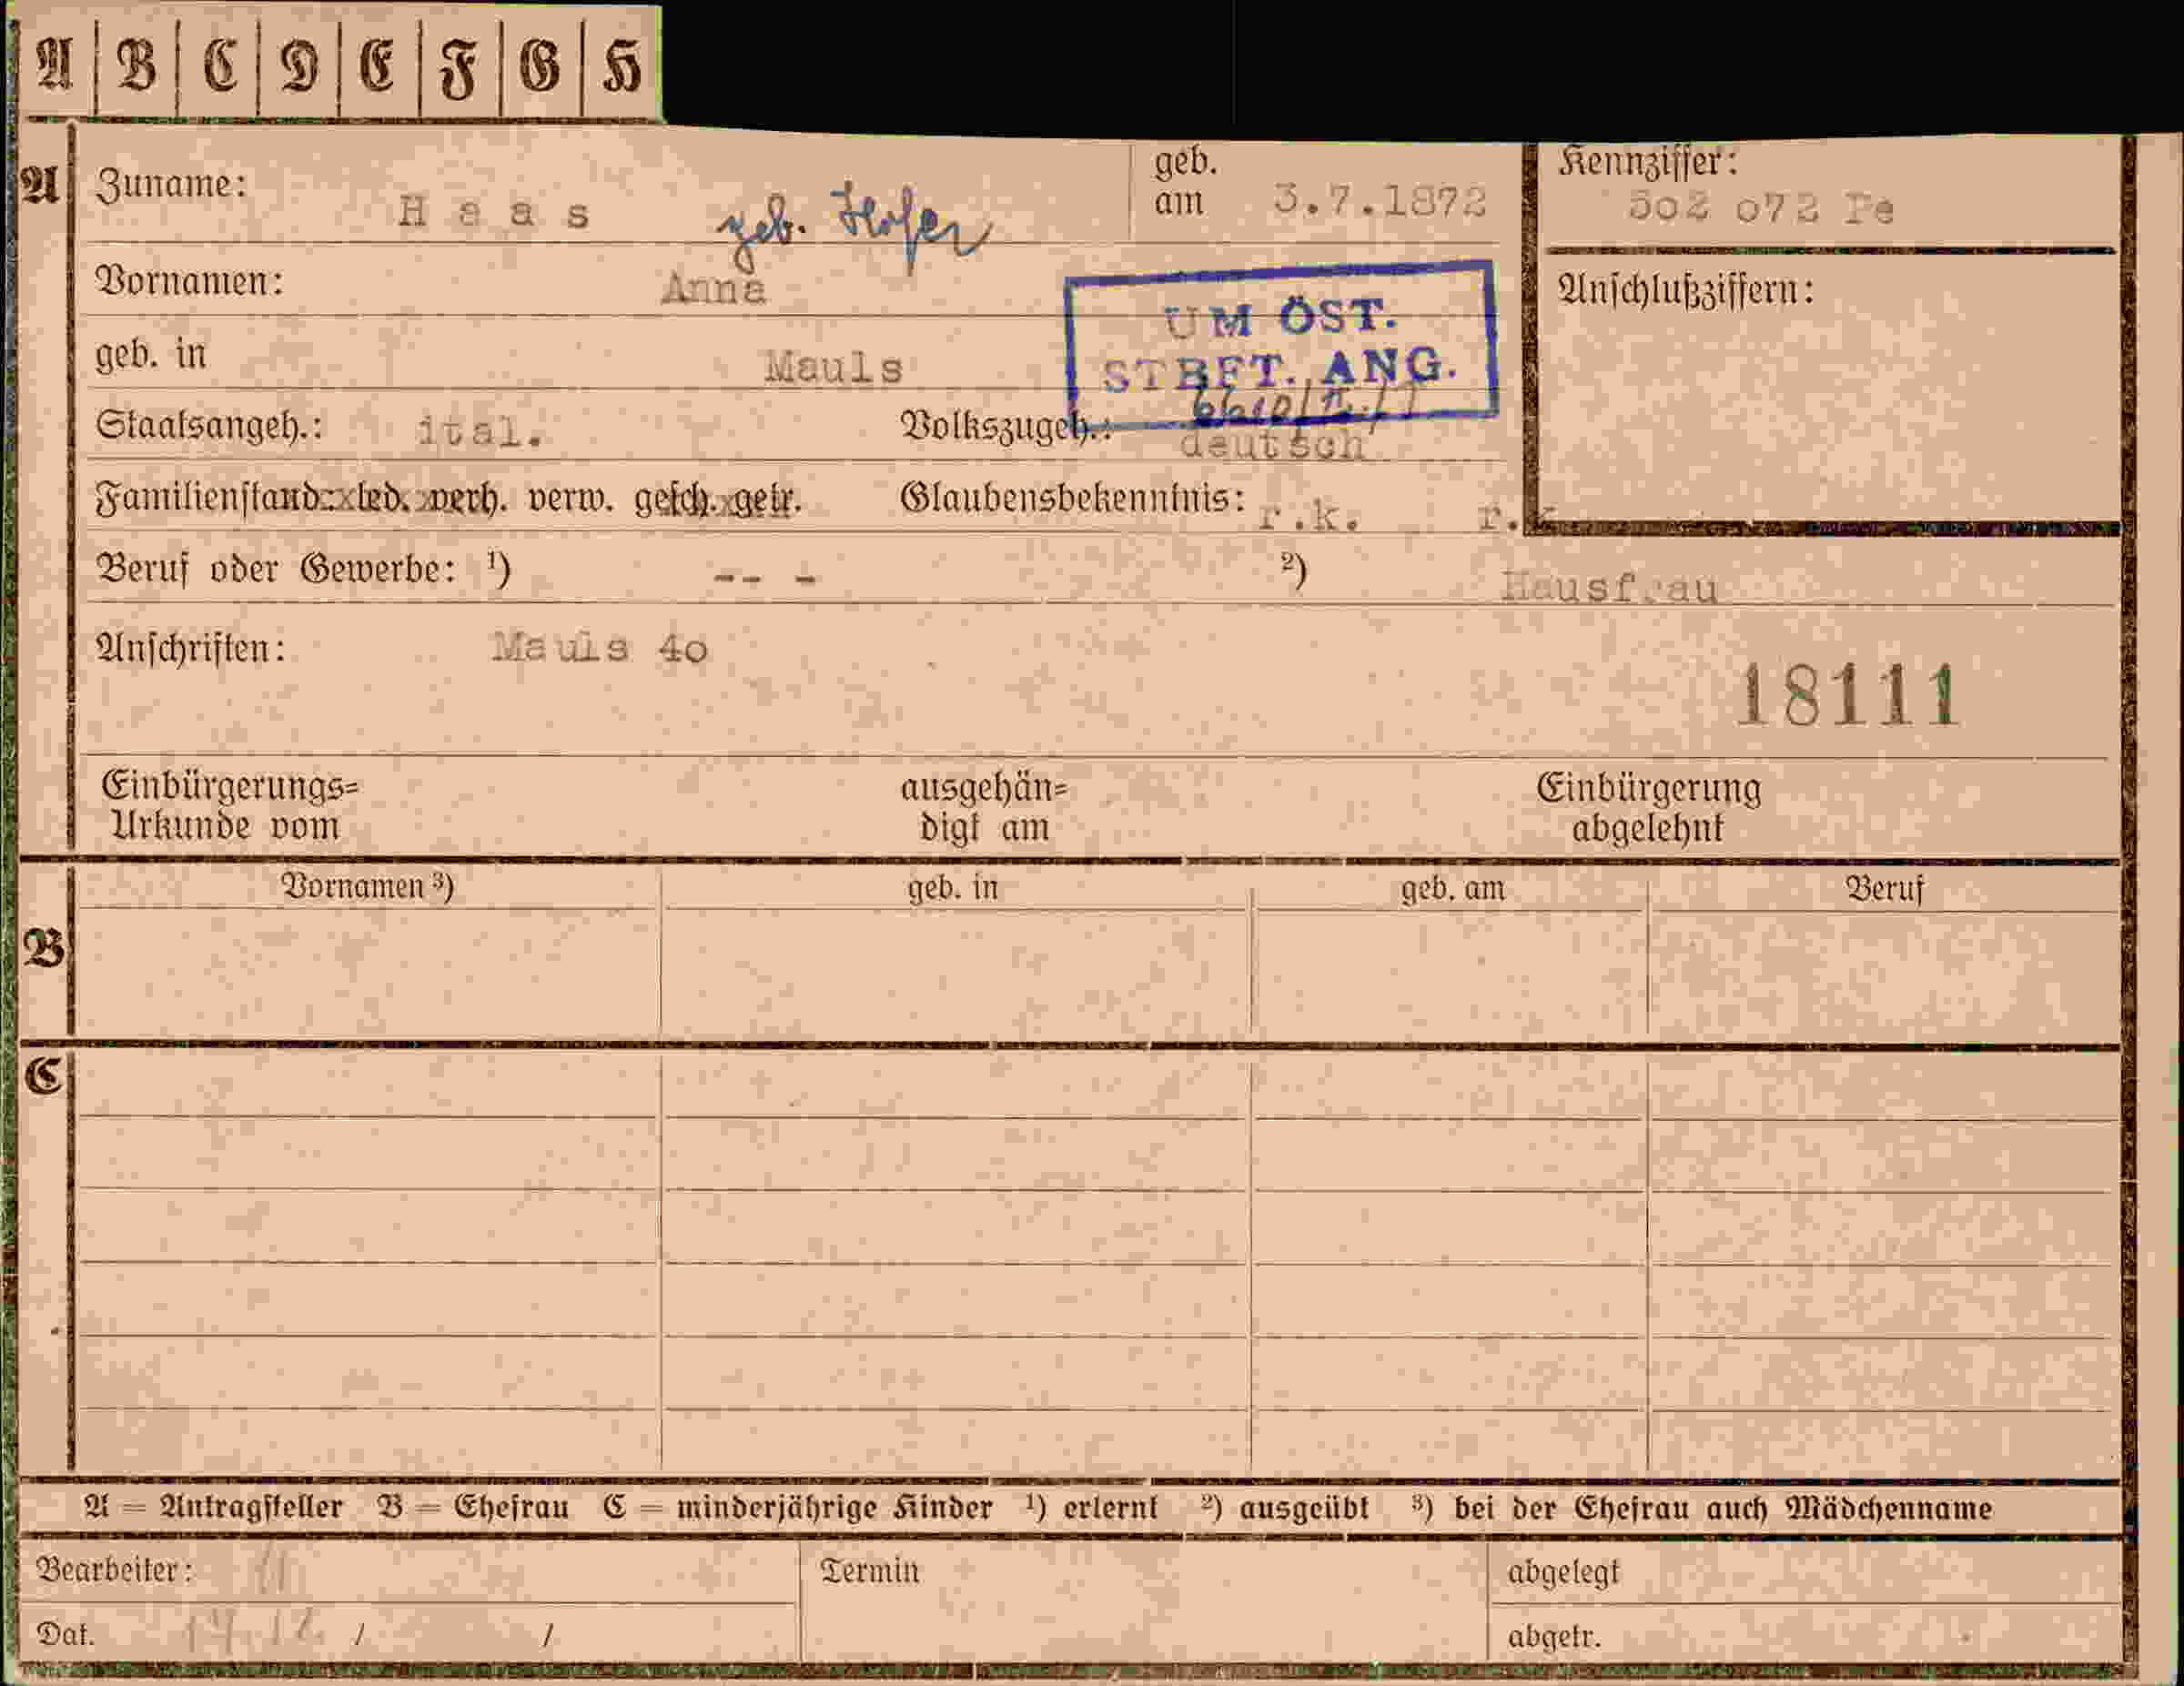 A B C D E F G H
A
Zuname: Haas geb. Hofer
geb. am 3.7.1872
Kennziffer: 502 072 Pe
Vornamen: Anna
Anschlußziffern:
UM ÖST.
STBFT. ANG.
geb. in Mauls
Staatsangeh.: ital. Volkszugeh.: deutsch
Familienstand: led. verh. verw. gesch. getr. Glaubensbekenntnis: r.k. r.k
Beruf oder Gewerbe: ¹) -- - ²) Hausfrau
Anschriften: Mauls 40
18111
Einbürgerungs=
Urkunde vom
ausgehän=
digt am
Einbürgerung
abgelehnt
B
Vornamen ³) geb. in geb. am Beruf
C
A = Antragsteller B = Ehefrau C = minderjährige Kinder ¹) erlernt ²) ausgeübt ³) bei der Ehefrau auch Mädchenname
Bearbeiter: Termin abgelegt
Dat. 14.12. / / abgetr.